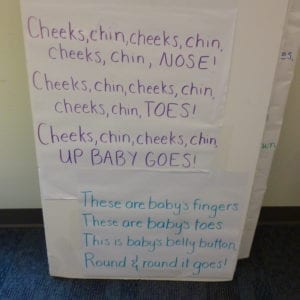 Cheeks, chin, cheeks, chin,
cheeks, chin, NOSE!
Cheeks, chin, cheeks, chin,
cheeks, chin, TOES!
Cheeks, chin, cheeks, chin,
UP BABY GOES!
These are baby's fingers
These are baby's toes
This is baby's belly button,
Round & round it goes!